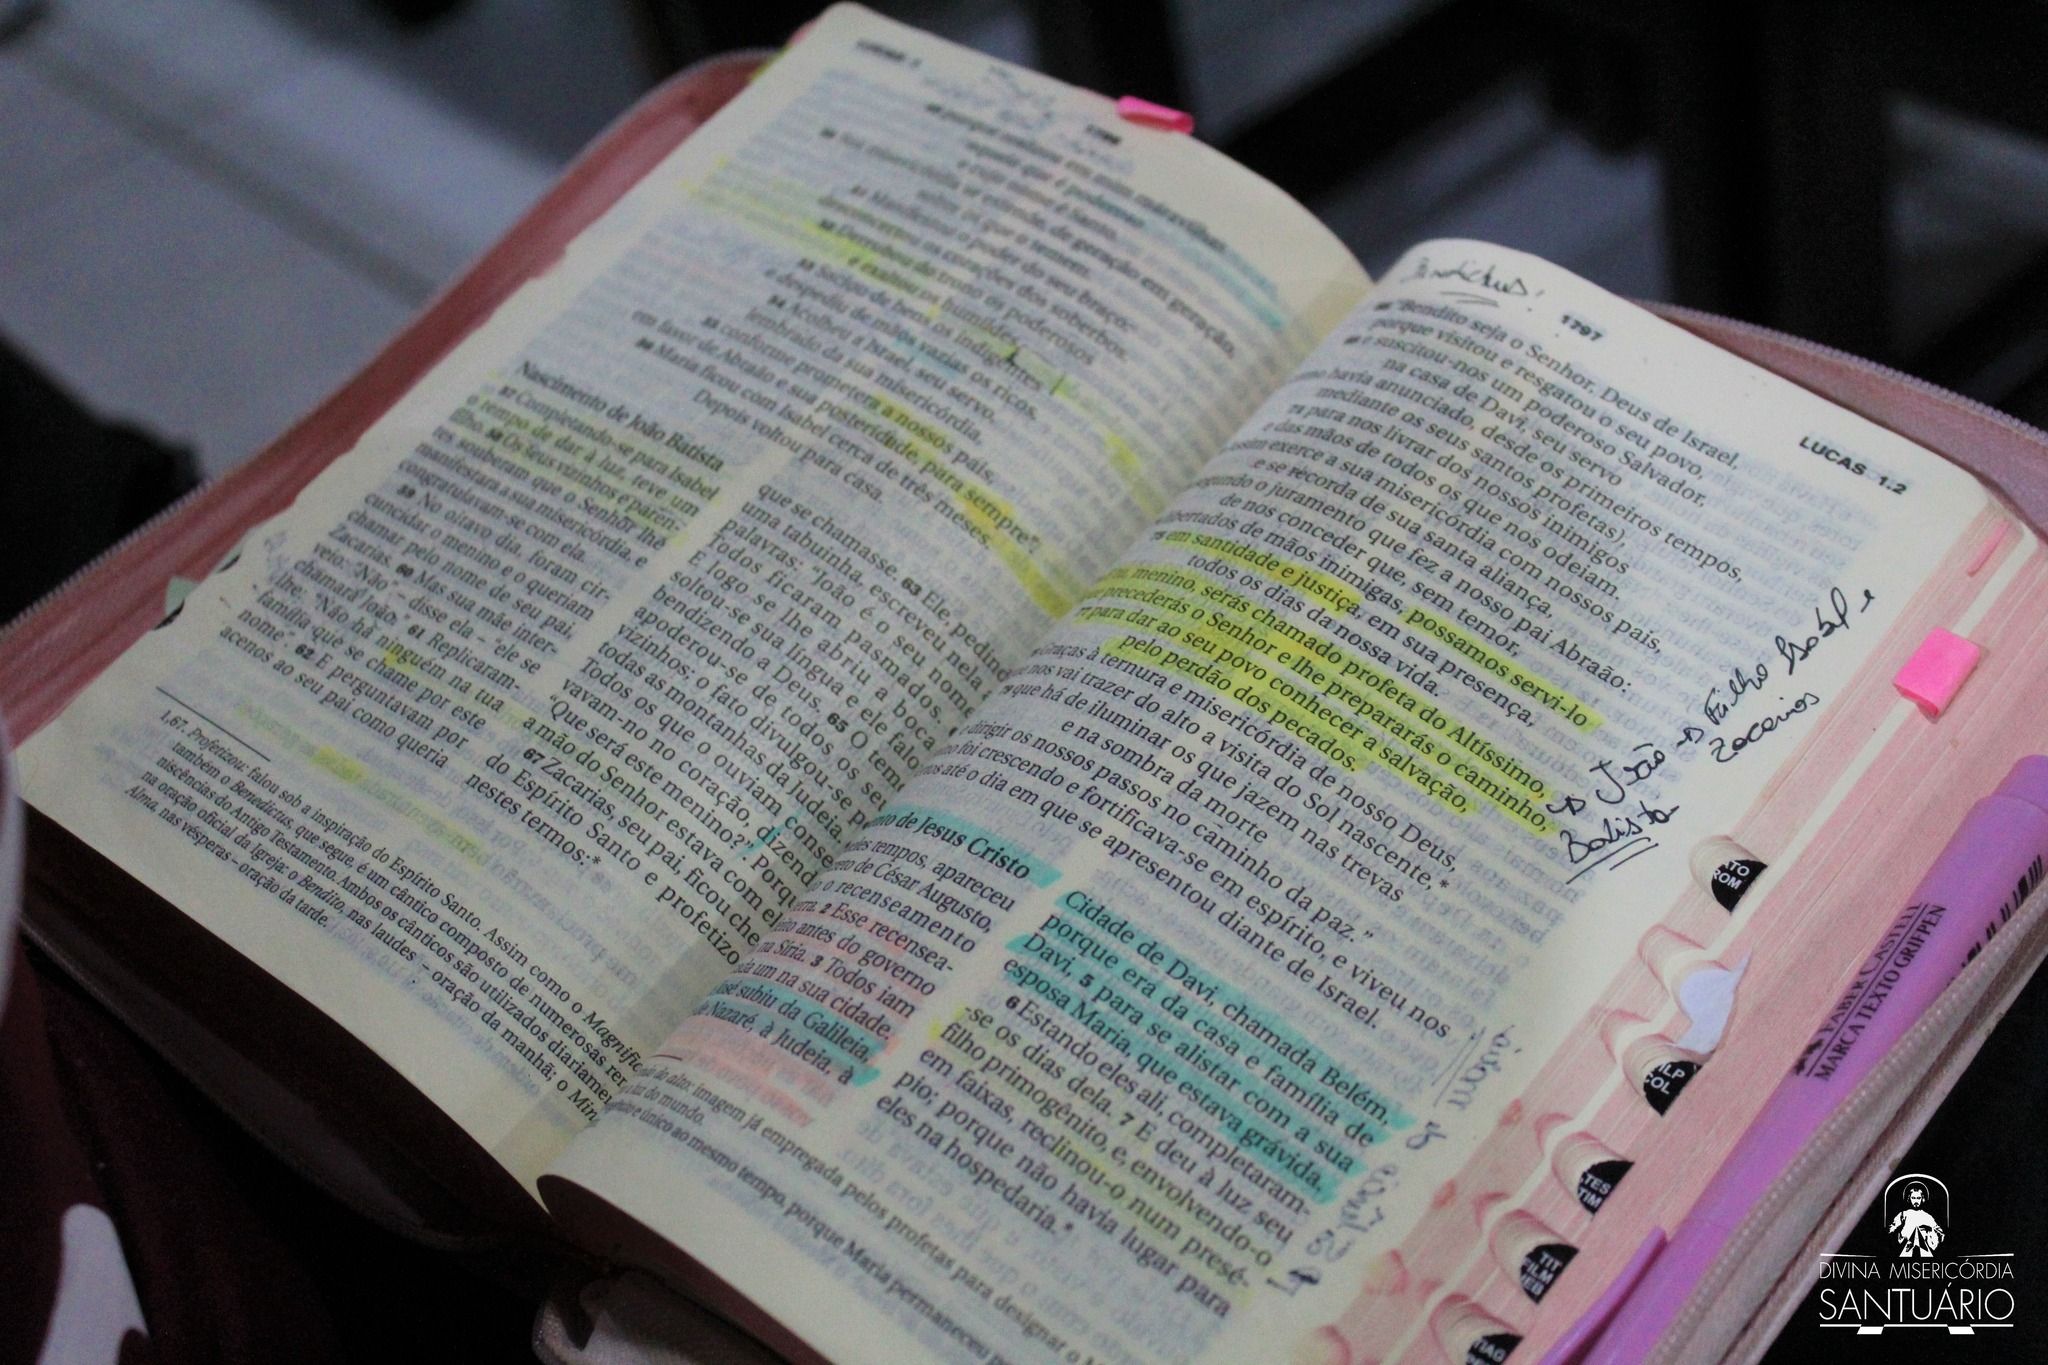 LUCAS 1
1796
49 porque realizou em mim maravilhas
aquele que é poderoso
e cujo nome é Santo.
50 Sua misericórdia se estende, de geração em geração,
sobre os que o temem.
51 Manifestou o poder do seu braço:
desconcertou os corações dos soberbos.
52 Derrubou do trono os poderosos
e exaltou os humildes.
53 Saciou de bens os indigentes
e despediu de mãos vazias os ricos.
54 Acolheu a Israel, seu servo,
lembrado da sua misericórdia,
55 conforme prometera a nossos pais,
em favor de Abraão e sua posteridade, para sempre".
56 Maria ficou com Isabel cerca de três meses.
Depois voltou para casa.
Nascimento de João Batista
57 Completando-se para Isabel
o tempo de dar à luz, teve um
filho. 58 Os seus vizinhos e paren-
tes souberam que o Senhor lhe
manifestara a sua misericórdia, e
congratulavam-se com ela.
59 No oitavo dia, foram cir-
cuncidar o menino e o queriam
chamar pelo nome de seu pai,
Zacarias. 60 Mas sua mãe inter-
veio: "Não" – disse ela – "ele se
chamará João." 61 Replicaram-
lhe: "Não há ninguém na tua
família que se chame por este
nome". 62 E perguntavam por
acenos ao seu pai como queria
que se chamasse. 63 Ele, pedind
uma tabuinha, escreveu nela
palavras: "João é o seu nome
Todos ficaram pasmados.
E logo se lhe abriu a boca
soltou-se sua língua e ele falo
bendizendo a Deus. 65 O tem
apoderou-se de todos os seu
vizinhos; o fato divulgou-se p
todas as montanhas da Judeia
Todos os que o ouviam conse
vavam-no no coração, dizend
"Que será este menino?". Porqu
a mão do Senhor estava com el
67 Zacarias, seu pai, ficou che
do Espírito Santo e profetizo
nestes termos:*
1,67. Profetizou: falou sob a inspiração do Espírito Santo. Assim como o Magnific
também o Benedictus, que segue, é um cântico composto de numerosas rer
niscências do Antigo Testamento. Ambos os cânticos são utilizados diariamer
na oração oficial da Igreja: o Bendito, nas laudes – oração da manhã; o Min
Alma, nas vésperas – oração da tarde.
Benedictus
1797
LUCAS 1.2
68 "Bendito seja o Senhor, Deus de Israel,
porque visitou e resgatou o seu povo,
69 e suscitou-nos um poderoso Salvador,
na casa de Davi, seu servo
mo havia anunciado, desde os primeiros tempos,
mediante os seus santos profetas),
71 para nos livrar dos nossos inimigos
e das mãos de todos os que nos odeiam.
sim exerce a sua misericórdia com nossos pais,
e se recorda de sua santa aliança,
segundo o juramento que fez a nosso pai Abraão:
de nos conceder que, sem temor,
bertados de mãos inimigas, possamos servi-lo
75 em santidade e justiça, em sua presença,
todos os dias da nossa vida.
menino, serás chamado profeta do Altíssimo,
precederás o Senhor e lhe prepararás o caminho,
77 para dar ao seu povo conhecer a salvação,
pelo perdão dos pecados.
Graças à ternura e misericórdia de nosso Deus,
nos vai trazer do alto a visita do Sol nascente,*
79 que há de iluminar os que jazem nas trevas
e na sombra da morte
e dirigir os nossos passos no caminho da paz."
foi crescendo e fortificava-se em espírito, e viveu nos
até o dia em que se apresentou diante de Israel.
João → Filho Isabel e
Batista Zacarias
nto de Jesus Cristo
eles tempos, apareceu
eto de César Augusto,
o o recenseamento
erra. 2 Esse recensea-
eito antes do governo
na Síria. 3 Todos iam
ada um na sua cidade.
José subiu da Galileia,
de Nazaré, à Judeia, à
Cidade de Davi, chamada Belém,
porque era da casa e família de
Davi, 5 para se alistar com a sua
esposa Maria, que estava grávida.
6 Estando eles ali, completaram-
-se os dias dela. 7 E deu à luz seu
filho primogênito, e, envolvendo-o
em faixas, reclinou-o num presé-
pio; porque não havia lugar para
eles na hospedaria.*
do alto: imagem já empregada pelos profetas para designar o M
luz do mundo.
e único ao mesmo tempo, porque Maria permaneceu
TO
ROM
FILP
COL
TES
TIM
TIT
FILM
HEB
TIAG
FABER-CASTELL
MARCA TEXTO GRIFPEN
DIVINA MISERICÓRDIA
SANTUÁRIO